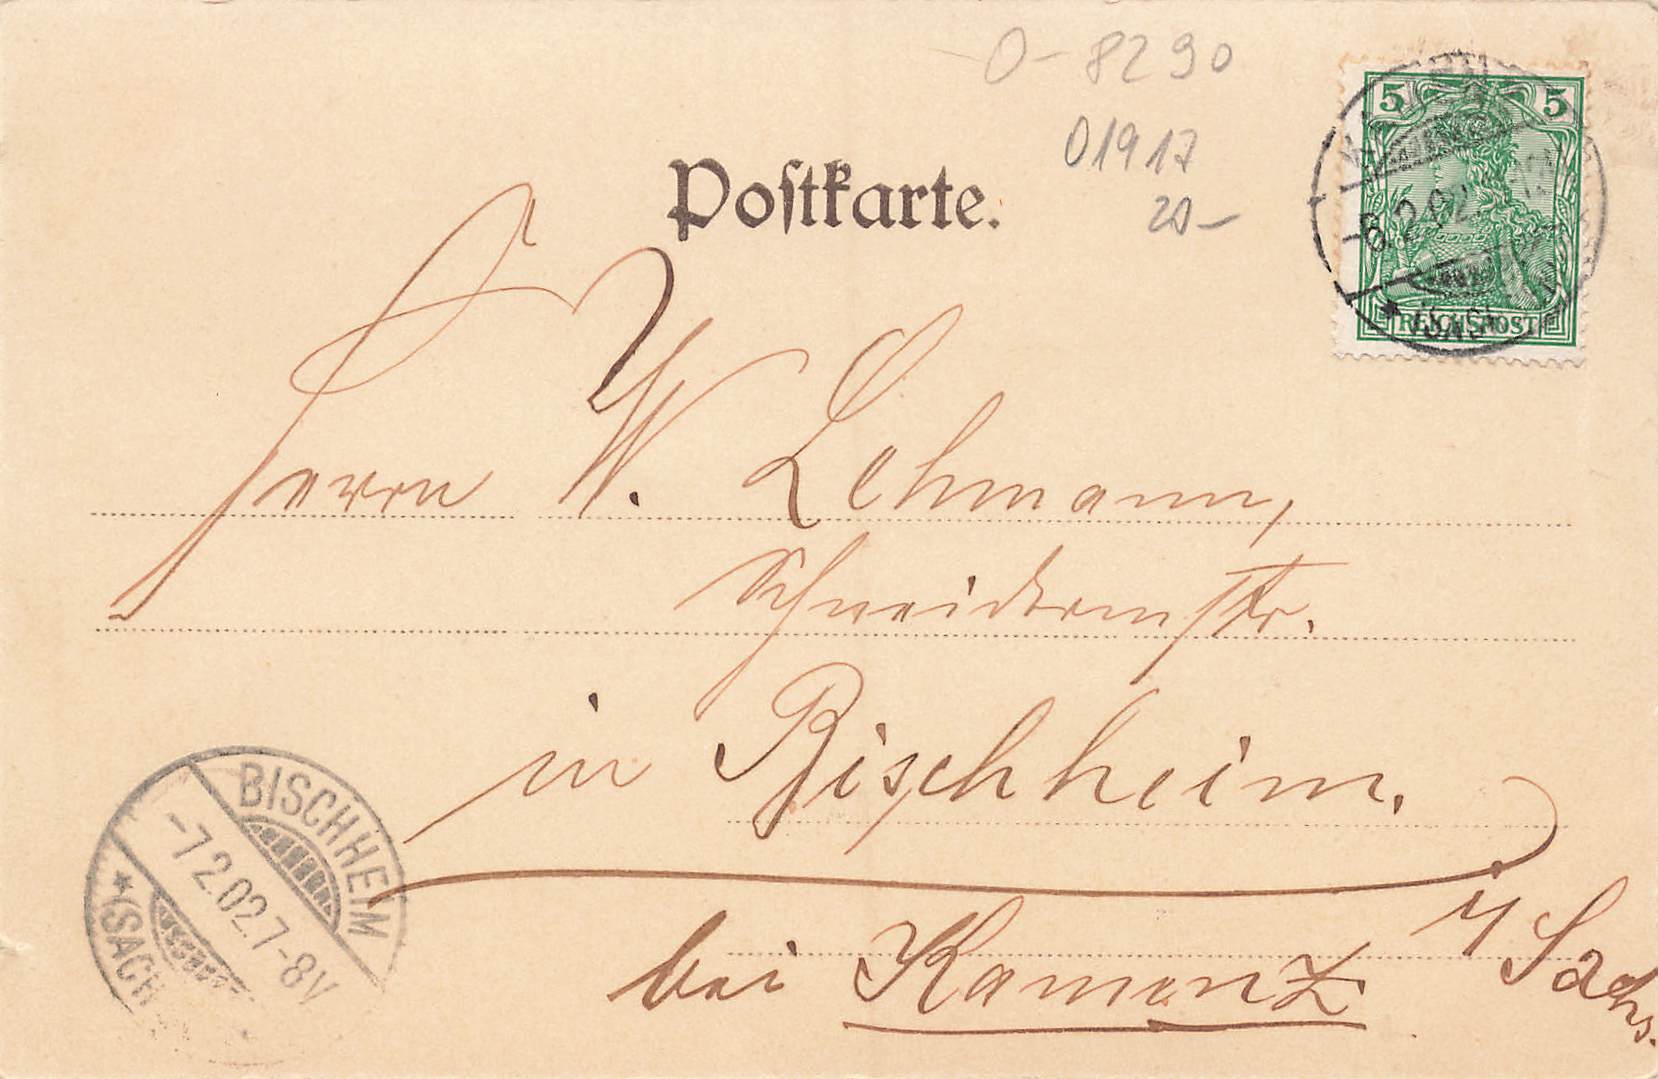 O-8290
01917
20-
Postkarte.
5 5
-6.2.02.
REICHSPOST
Herrn W. Lehmann,
Schneidermstr.
in Bischheim.
bei Kamenz i/Sachs.
BISCHHEIM
-7.2.02.7-8V
*(SACH